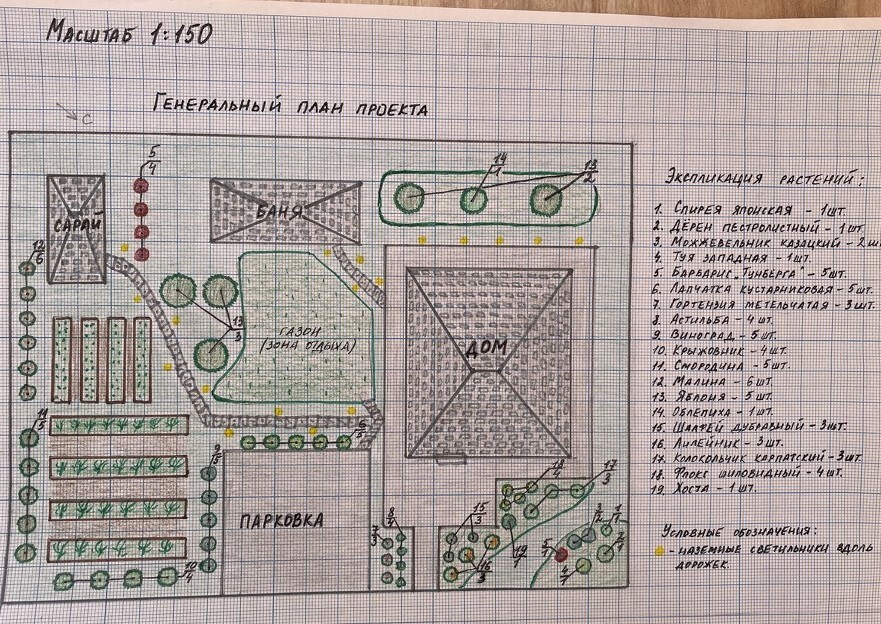 Масштаб 1:150
Генеральный план проекта
С
5/4
14/1
13/2
САРАЙ
БАНЯ
12/6
13/3
ГАЗОН
(ЗОНА ОТДЫХА)
ДОМ
11/5
6/5
9/5
ПАРКОВКА
10/4
7/3
8/4
15/3
16/3
18/4
17/3
19/1
5/1
3/2
1/1
2/1
4/1
Экспликация растений:
1. Спирея японская – 1 шт.
2. Дёрен пестролистный – 1 шт.
3. Можжевельник казацкий – 2 шт.
4. Туя западная – 1 шт.
5. Барбарис „Тунберга" – 5 шт.
6. Лапчатка кустарниковая – 5 шт.
7. Гортензия метельчатая – 3 шт.
8. Астильба – 4 шт.
9. Виноград – 5 шт.
10. Крыжовник – 4 шт.
11. Смородина – 5 шт.
12. Малина – 6 шт.
13. Яблоня – 5 шт.
14. Облепиха – 1 шт.
15. Шалфей дубравный – 3 шт.
16. Лилейник – 3 шт.
17. Колокольчик карпатский – 3 шт.
18. Флокс шиловидный – 4 шт.
19. Хоста – 1 шт.
Условные обозначения:
- наземные светильники вдоль
дорожек.